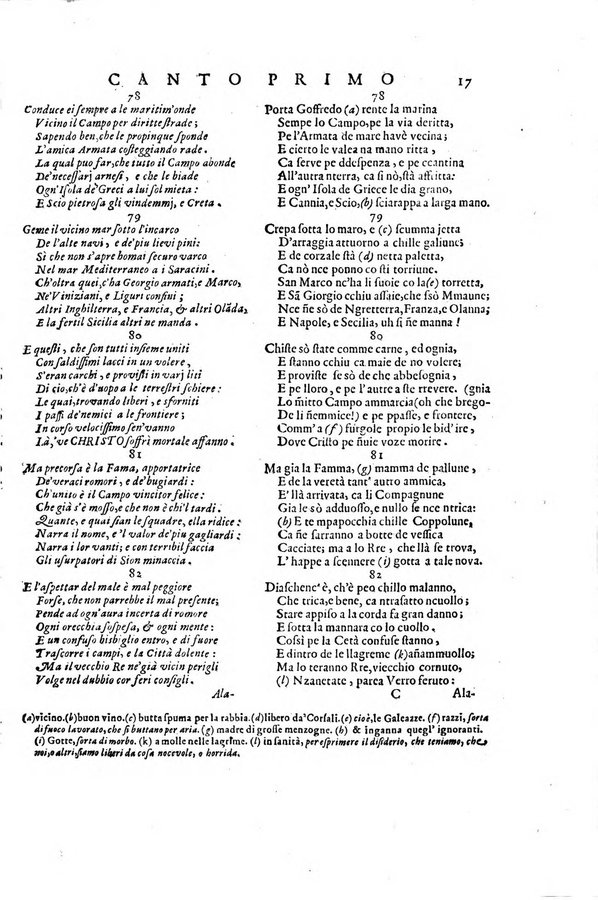 CANTO PRIMO 17
78
Conduce ei sempre a le maritim'onde
Vicino il Campo per diritte strade;
Sapendo ben, che le propinque sponde
L'amica Armata costeggiando rade.
La qual puo far, che tutto il Campo abonde
De' necessarj arnesi, e che le biade
Ogn'Isola de' Greci a lui sol mieta:
E Scio pietrosa gli vindemmj, e Creta.
79
Geme il vicino mar sotto l'incarco
De l'alte navi, e de' piu lievi pini:
Sì che non s'apre homai securo varco
Nel mar Mediterraneo a i Saracini.
Ch'oltra quei, c'ha Georgio armati, e Marco,
Ne' Viniziani, e Liguri confini;
Altri Inghilterra, e Francia, & altri Olãda,
E la fertil Sicilia altri ne manda.
80
E questi, che son tutti insieme uniti
Con saldissimi lacci in un volere,
S'eran carchi, e provisti in varj liti
Di ciò, ch'è d'uopo a le terrestri schiere:
Le quai, trovando liberi, e sforniti
I passi de' nemici a le frontiere;
In corso velocissimo sen'vanno
Là, 've CHRISTO soffrì mortale affanno.
81
Ma precorsa è la Fama, apportatrice
De' veraci romori, e de' bugiardi:
Ch'unito è il Campo vincitor felice:
Che già s'è mosso, e che non è chi'l tardi.
Quante, e quai sian le squadre, ella ridice:
Narra il nome, e 'l valor de' piu gagliardi:
Narra i lor vanti; e con terribil faccia
Gli usurpatori di Sion minaccia.
82
E l'aspettar del male è mal peggiore
Forse, che non parrebbe il mal presente;
Pende ad ogn'aura incerta di romore
Ogni orecchia sospesa, & ogni mente:
E un confuso bisbiglio entro, e di fuore
Trascorre i campi, e la Città dolente:
Ma il vecchio Re ne' già vicin perigli
Volge nel dubbio cor feri consigli.
Ala-
78
Porta Goffredo (a) rente la marina
Sempe lo Campo, pe la via deritta,
Pe l'Armata de mare havè vecina;
E cierto le valea na mano ritta,
Ca serve pe ddespenza, e pe ccantina
All'autra nterra, ca si nò, stà affritta:
E ogn' Isola de Griece le dia grano,
E Cannia, e Scio, (b) sciarappa a larga mano.
79
Crepa sotto lo maro, e (c) scumma jetta
D'arraggia attuorno a chille galiune;
E de corzale stà (d) netra paletta,
Ca nò nce ponno cchiù sti torriune.
San Marco nc'ha li suoie co la (e) torretta,
E Sã Giorgio cchiu assaie, che sò Mmaune;
Nce ñe sò de Ngretterra, Franza, e Olanna;
E Napole, e Secilia, uh si ñe manna!
80
Chiste sò state comme carne, ed ognia,
E stanno cchiu ca maie de no volere;
E proviste se sò de che abbesognia,
E pe lloro, e pe l'autre a ste rrevere. (gnia
Lo ñitto Campo ammarcia (oh che brego-
De li ñiemmice!) e pe ppasse, e frontere,
Comm'a (f) furgole propio le bid'ire,
Dove Cristo pe ñuie voze morire.
81
Ma gia la Famma, (g) mamma de pallune,
E de la veretà tant' autro ammica,
E' llà arrivata, ca li Compagnune
Gia le sò adduosso, e nullo se nce ntrica:
(h) E te mpapocchia chille Coppolune,
Ca ñe sarranno a botte de vessica
Cacciate; ma a lo Rre, che llà se trova,
L' happe a scennere (i) gotta a tale nova.
82
Diaschene' è, ch'è peo chillo malanno,
Che trica, e bene, ca ntrasatto ncuollo;
Stare appiso a la corda fa gran danno;
E sotta la mannara co lo cuollo.
Cossì pe la Cetà confuse stanno,
E dintro de le llagreme (k) añammuollo;
Ma lo teranno Rre, viecchio cornuto,
(l) Nzanetate, parea Verro feruto:
C Ala-
(a) vicino. (b) buon vino. (c) butta spuma per la rabbia. (d) libero da' Corsali. (e) cioè, le Galeazze. (f) razzi, sorta
di fuoco lavorato, che si buttano per aria. (g) madre di grosse menzogne. (h) & inganna quegl' ignoranti.
(i) Gotte, sorta di morbo. (k) a molle nelle lagrime. (l) in sanità, per esprimere il disiderio, che teniamo, che
noi, o altri, siamo liberi da cosa nocevole, o horrida.